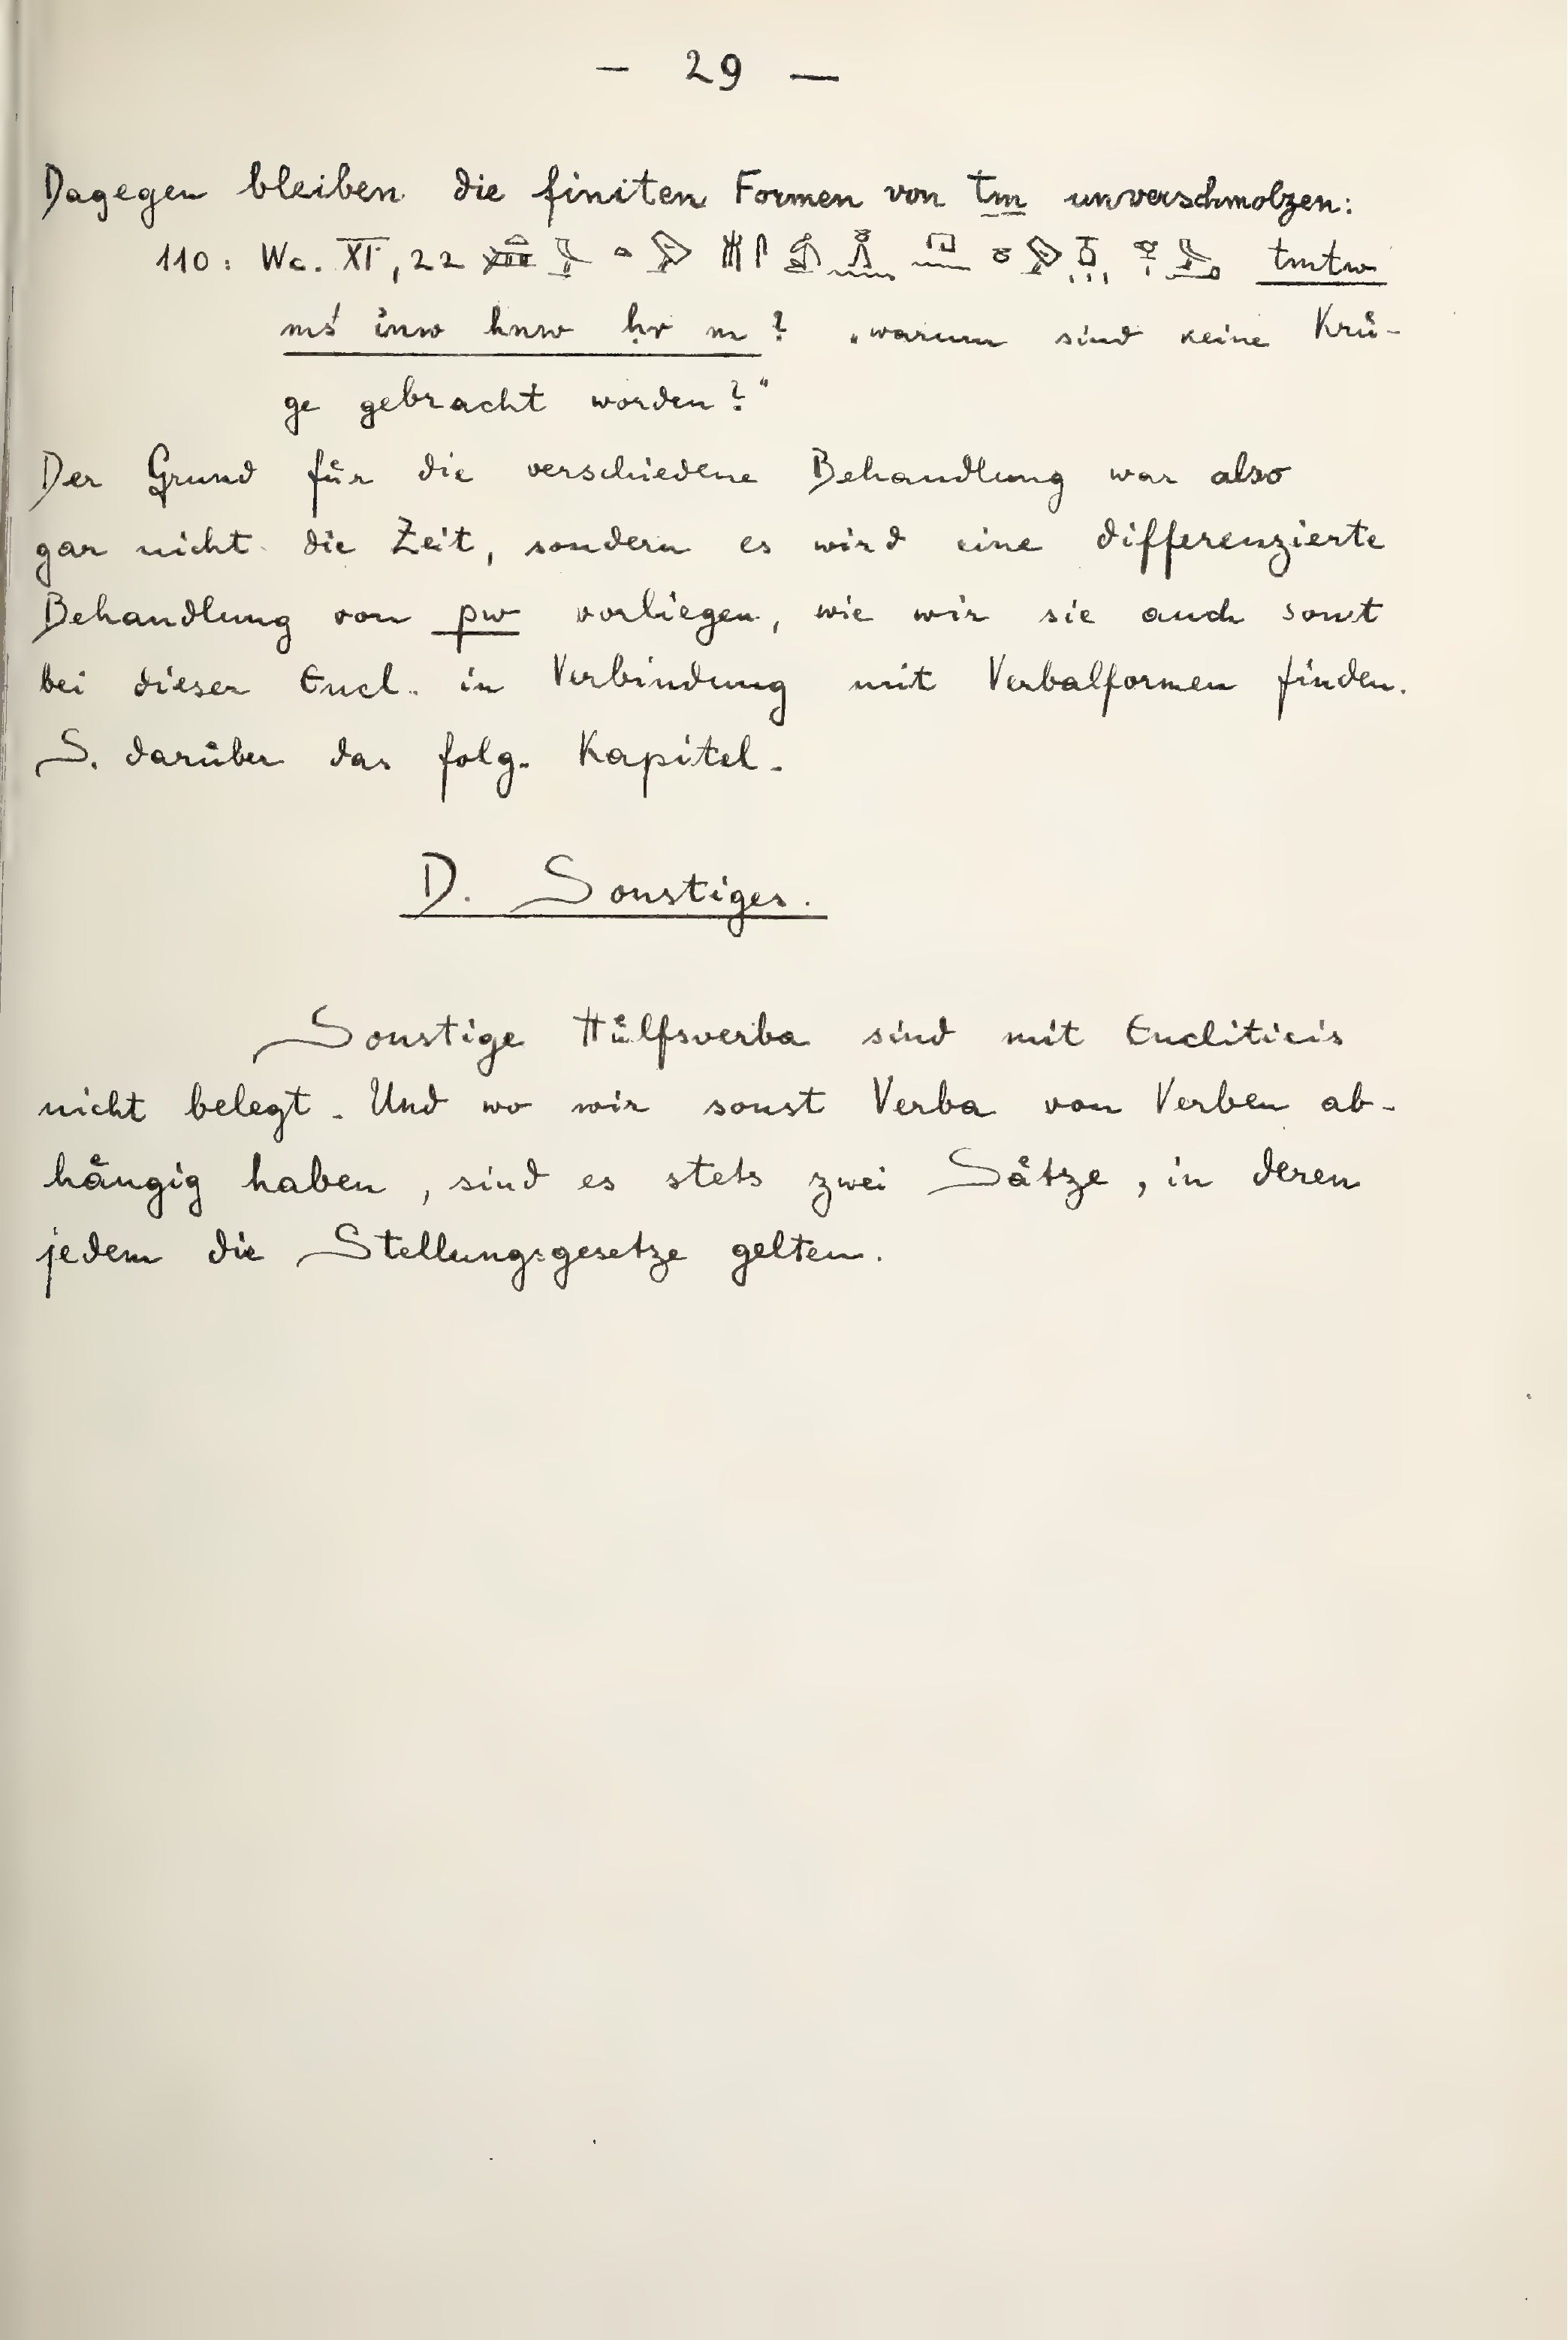 — 29 —
Dagegen bleiben die finiten Formen von tm unverschmolzen:
110: We. XI, 22 tmtw
mś inw hnw ḥr m? „warum sind keine Krü-
ge gebracht worden?“
Der Grund für die verschiedene Behandlung war also
gar nicht die Zeit, sondern es wird eine differenzierte
Behandlung von pw vorliegen, wie wir sie auch sonst
bei dieser Encl. in Verbindung mit Verbalformen finden.
S. darüber das folg. Kapitel.
D. Sonstiges.
Sonstige Hülfsverba sind mit Encliticis
nicht belegt. Und wo wir sonst Verba von Verben ab-
hängig haben, sind es stets zwei Sätze, in deren
jedem die Stellungsgesetze gelten.